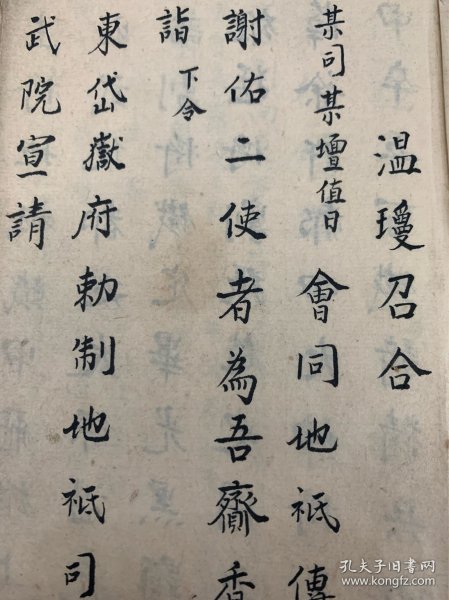 温瓊召合
某司某壇值日 會同地祇傳
謝佑二使者為吾齎香
詣 下令
東岱嶽府勅制地祇司
武院宣請
孔夫子旧书网